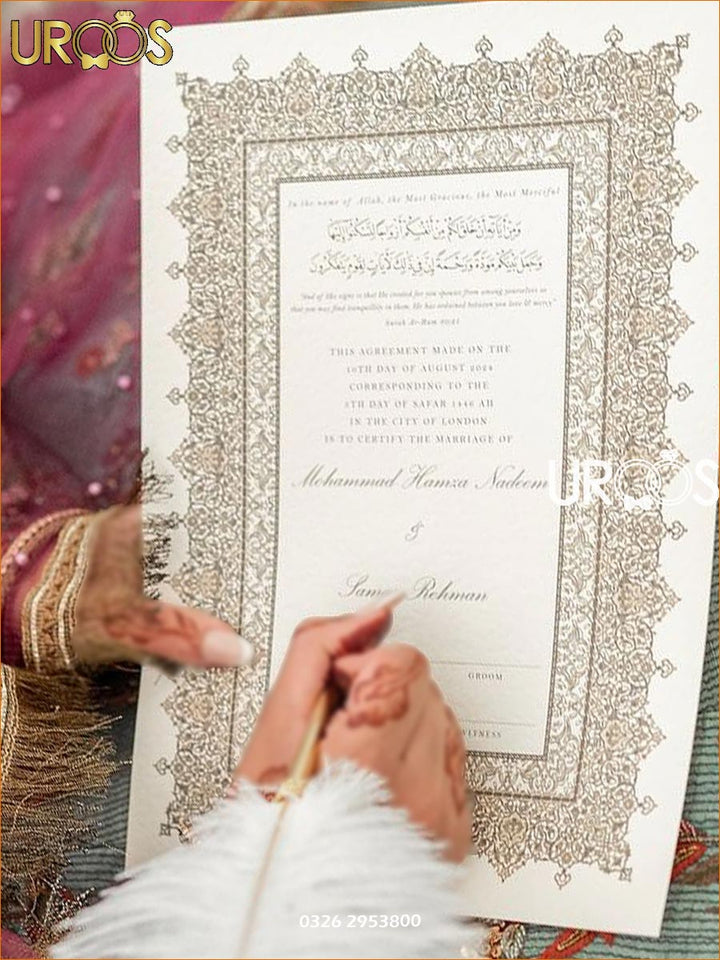 UROOS
In the name of Allah, the Most Gracious, the Most Merciful
وَمِنْ آيَاتِهِ أَنْ خَلَقَ لَكُم مِّنْ أَنفُسِكُمْ أَزْوَاجًا لِّتَسْكُنُوا إِلَيْهَا
وَجَعَلَ بَيْنَكُم مَّوَدَّةً وَرَحْمَةً إِنَّ فِي ذَٰلِكَ لَآيَاتٍ لِّقَوْمٍ يَتَفَكَّرُونَ
"And of His signs is that He created for you spouses from among yourselves so
that you may find tranquility in them. He has ordained between you love & mercy"
Surah Ar-Rum 30:21
THIS AGREEMENT MADE ON THE
10TH DAY OF AUGUST 2024
CORRESPONDING TO THE
5TH DAY OF SAFAR 1446 AH
IN THE CITY OF LONDON
IS TO CERTIFY THE MARRIAGE OF
Mohammad Hamza Nadeem
UROOS
&
Rehman
GROOM
WITNESS
0326 2953800